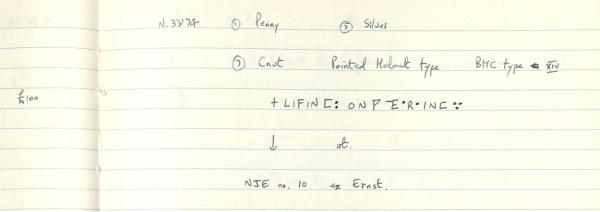 N.3374 ① Penny ③ Silver
⑦ Cnut Pointed Helmet type BMC type XIV
£100
+LIFINC: ONPE·R·INC:·
↓ wt.
NJE no. 10 ex Ernst.